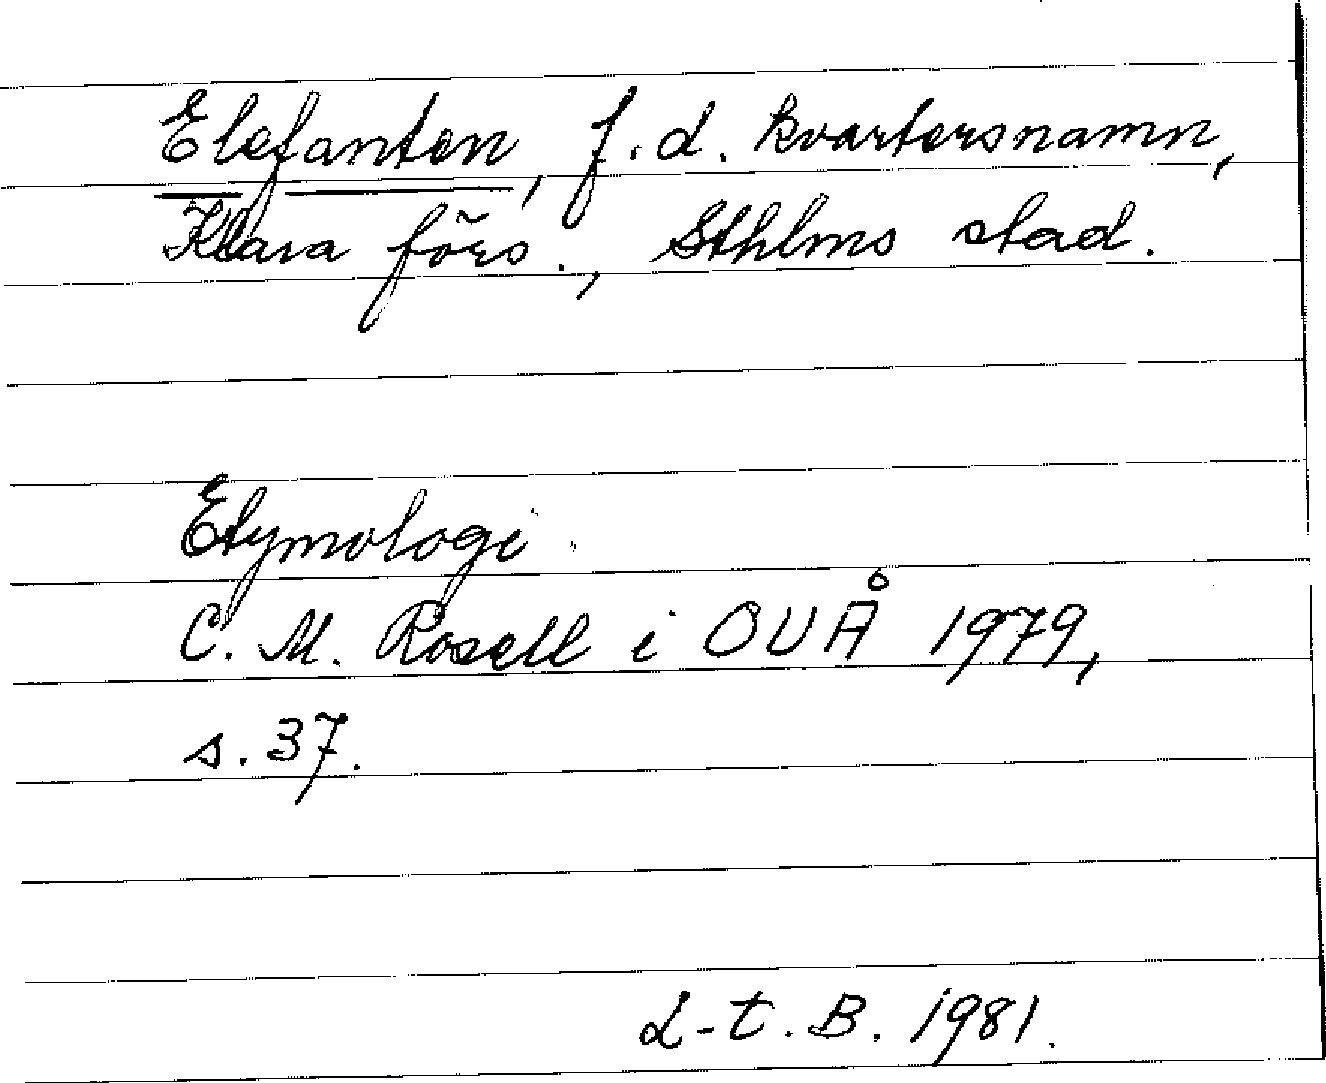 Elefanten, f.d. kvartersnamn,
Klara förs., Sthlms stad.
Etymologi.
C. M. Rosell i OUÅ 1979,
s. 37.
L-t. B. 1981.